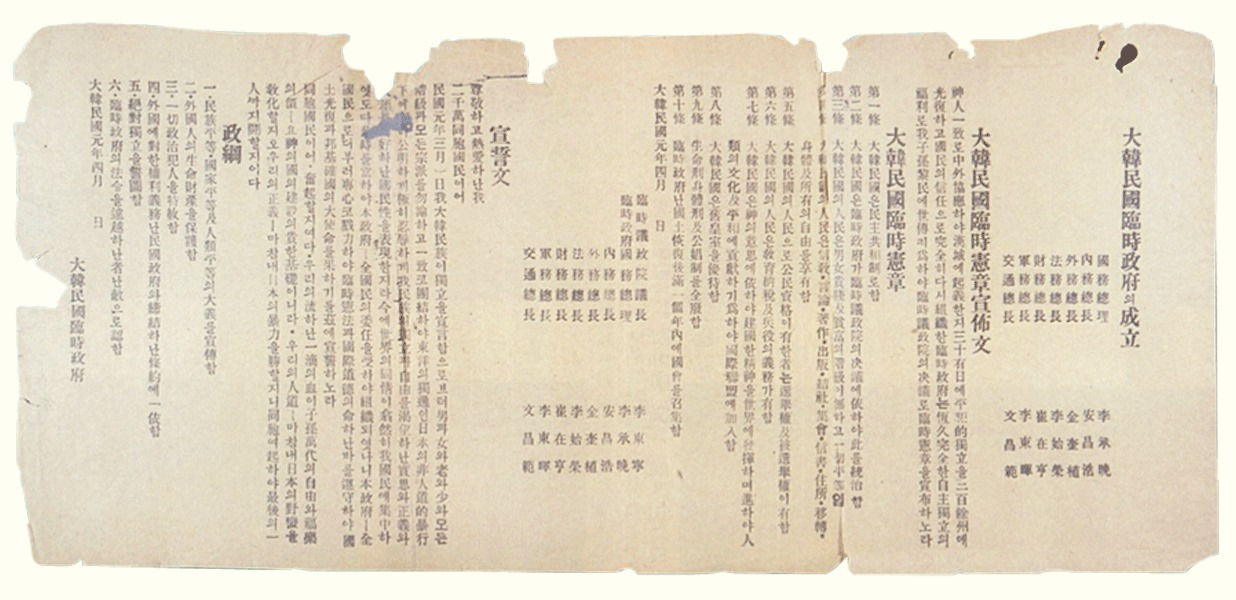 大韓民國臨時政府의成立
國務總理 李承晩
內務總長 安昌浩
外務總長 金奎植
法務總長 李始榮
財務總長 崔在亨
軍務總長 李東暉
交通總長 文昌範
大韓民國臨時憲章宣佈文
神人一致로中外協應하야漢城에起義한지三十有日에平和的獨立을三百餘州에
光復하고國民의信任으로完全히다시組織한臨時政府는恆久完全한自主獨立의
福利로我子孫黎民에世傳키爲하야臨時議政院의決議로臨時憲章을宣布하노라
大韓民國臨時憲章
第一條 大韓民國은民主共和制로함
第二條 大韓民國은臨時政府가臨時議政院의決議에依하야此를統治함
第三條 大韓民國의人民은男女貴賤及貧富의階級이無하고一切平等임
人民은信敎・言論・著作・出版・結社・集會・信書・住所・移轉・
身體及所有의自由를享有함
第五條 大韓民國의人民으로公民資格이有한者는選擧權及被選擧權이有함
第六條 大韓民國의人民은敎育納稅及兵役의義務가有함
第七條 大韓民國은神의意思에依하야建國한精神을世界에發揮하며進하야人
類의文化及平和에貢獻하기爲하야國際聯盟에加入함
第八條 大韓民國은舊皇室을優待함
第九條 生命刑身體刑及公娼制를全廢함
第十條 臨時政府난國土恢復後滿一個年內에國會를召集함
大韓民國元年四月 日
臨時議政院議長 李東寧
臨時政府國務總理 李承晩
內務總長 安昌浩
外務總長 金奎植
法務總長 李始榮
財務總長 崔在亨
軍務總長 李東暉
交通總長 文昌範
宣誓文
尊敬하고熱愛하난我
二千萬同胞國民이여
民國元年三月一日我大韓民族이獨立을宣言함으로브터男과女와老와少와모든
階級과모든宗派를勿論하고一致로團結하야東洋의獨逸인日本의非人道的暴行
下에 公明하게極히忍辱하게我民族의獨立과自由를渴望하난實思와正義와
好하난國民性을表現한지라今에世界의同情이翕然히我國民에集中하
엿도다此時를當하야本政府ㅣ全國民의委任을受하야組織되엿나니本政府ㅣ全
國民으로더부러專心코戮力하야臨時憲法과國際道德의命하난바를遵守하야國
土光復과邦基確國의大使命을果하기를玆에宣誓하노라
同胞國民이여・奮起할지여다・우리의流하난一滴의血이子孫萬代의自由와福樂
의價ㅣ요神의國의建設의貴한基礎이니라・우리의人道ㅣ마참내日本의野蠻을
敎化할지오우리의正義ㅣ마참내日本의暴力을勝할지니同胞여起하야最後의一
人까지鬪할지어다
政綱
一・民族平等・國家平等及人類平等의大義를宣傳함
二・外國人의生命財產을保護함
三・一切政治犯人을特赦함
四・外國에對한權利義務난民國政府와締結하난條約에一依함
五・絕對獨立을誓圖함
六・臨時政府의法令을違越하난者난敵으로認함
大韓民國元年四月 日
大韓民國臨時政府